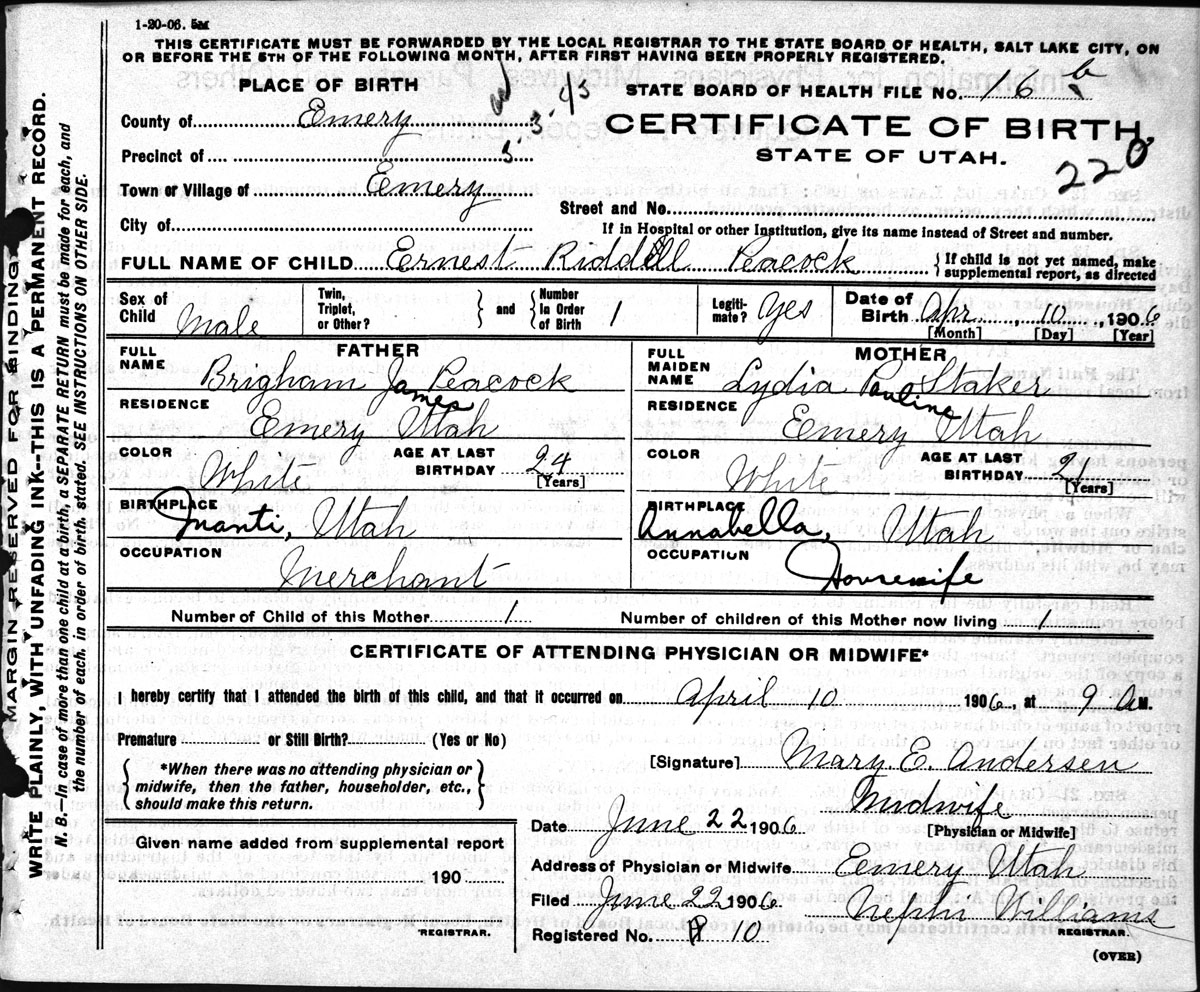 1-20-06. 5M
THIS CERTIFICATE MUST BE FORWARDED BY THE LOCAL REGISTRAR TO THE STATE BOARD OF HEALTH, SALT LAKE CITY, ON
OR BEFORE THE 5TH OF THE FOLLOWING MONTH, AFTER FIRST HAVING BEEN PROPERLY REGISTERED.
MARGIN RESERVED FOR BINDING
WRITE PLAINLY, WITH UNFADING INK--THIS IS A PERMANENT RECORD.
N. B.--In case of more than one child at a birth, a SEPARATE RETURN must be made for each, and
the number of each, in order of birth, stated. SEE INSTRUCTIONS ON OTHER SIDE.
PLACE OF BIRTH
County of Emery
Precinct of
Town or Village of Emery
City of
STATE BOARD OF HEALTH FILE No. 16 b
CERTIFICATE OF BIRTH,
STATE OF UTAH.
220
Street and No.
If in Hospital or other Institution, give its name instead of Street and number.
FULL NAME OF CHILD Ernest Riddell Peacock { If child is not yet named, make supplemental report, as directed
Sex of Child Male
Twin, Triplet, or Other? } and { Number in Order of Birth 1
Legitimate? Yes
Date of Birth Apr, 10, 1906
[Month] [Day] [Year]
FATHER
FULL NAME Brigham James Peacock
RESIDENCE Emery Utah
COLOR White AGE AT LAST BIRTHDAY 24 [Years]
BIRTHPLACE Manti, Utah
OCCUPATION Merchant
MOTHER
FULL MAIDEN NAME Lydia Pauline Staker
RESIDENCE Emery Utah
COLOR White AGE AT LAST BIRTHDAY [Years]
BIRTHPLACE Annabella, Utah
OCCUPATION Housewife
Number of Child of this Mother 1 Number of children of this Mother now living 1
CERTIFICATE OF ATTENDING PHYSICIAN OR MIDWIFE*
I hereby certify that I attended the birth of this child, and that it occurred on April 10 1906, at 9 A M.
Premature or Still Birth? (Yes or No)
{ *When there was no attending physician or midwife, then the father, householder, etc., should make this return. }
[Signature] Mary. E. Andersen
Midwife
[Physician or Midwife]
Date June 22 1906
Address of Physician or Midwife Emery Utah
Filed June 22 1906 Nephi Williams
REGISTRAR.
Registered No. 10
Given name added from supplemental report
190
REGISTRAR.
(OVER)